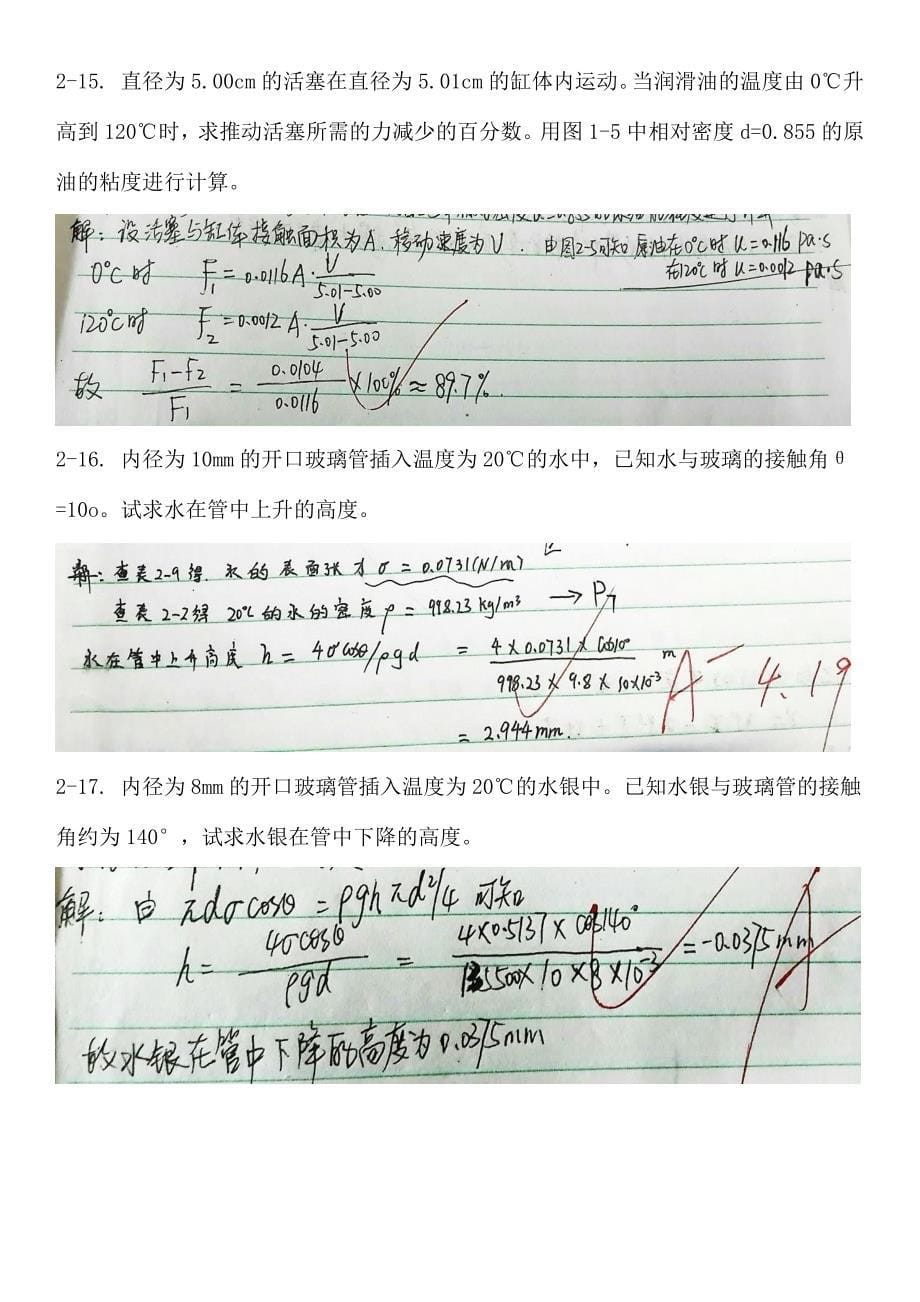 2-15. 直径为 5.00cm 的活塞在直径为 5.01cm 的缸体内运动。当润滑油的温度由 0℃升
高到 120℃时，求推动活塞所需的力减少的百分数。用图 1-5 中相对密度 d=0.855 的原
油的粘度进行计算。
解：设活塞与缸体接触面积为A，移动速度为V. 由图2-5可知 原油在0℃时 u=0.116 pa·s
在120℃时 u=0.0012 pa·s
0℃时 F₁=0.0116A·V/(5.01-5.00)
120℃时 F₂=0.0012A·V/(5.01-5.00)
故 (F₁-F₂)/F₁ = 0.0104/0.0116 ×100% ≈ 89.7%.
2-16. 内径为 10mm 的开口玻璃管插入温度为 20℃的水中，已知水与玻璃的接触角 θ
=10o。试求水在管中上升的高度。
解：查表2-9得. 水的表面张力 σ = 0.0731(N/m)
查表2-2得 20℃的水的密度 ρ = 998.23 kg/m³ → P₇
水在管中上升高度 h = 4σcosθ/ρgd = (4×0.0731×cos10°)/(998.23×9.8×10×10⁻³) m
A⁻ 4.19
= 2.944mm.
2-17. 内径为 8mm 的开口玻璃管插入温度为 20℃的水银中。已知水银与玻璃管的接触
角约为 140°，试求水银在管中下降的高度。
解：由 πdσcosθ = ρghπd²/4 可知
h = 4σcosθ/ρgd = (4×0.5137×cos140°)/(13550​0×10×8×10⁻³) = -0.0375mm
故水银在管中下降的高度为0.0375mm